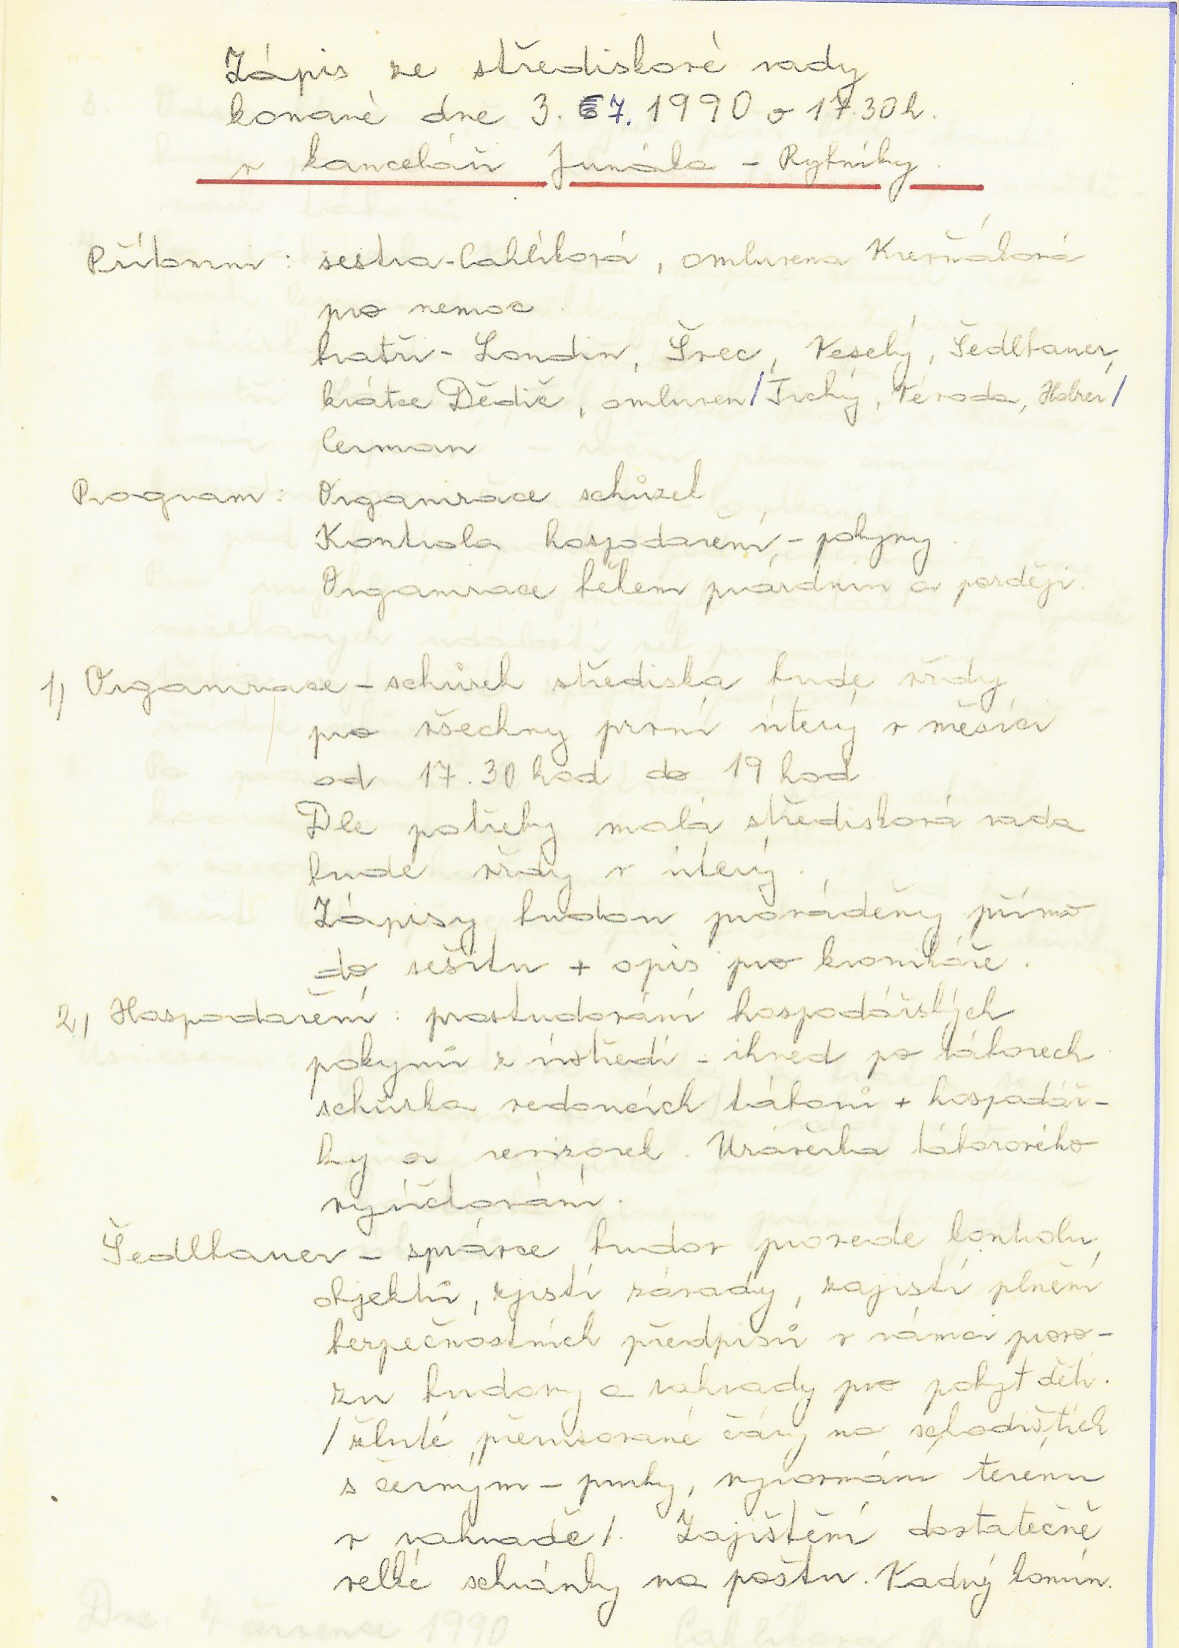 Zápis ze střediskové rady
konané dne 3. 7. 1990 v 17.30 h.
v kanceláři Junáka - Rybníky.
Přítomni: sestra - Cahlíková, omluvena
pro nemoc
bratři - Londin, Švec, Veselý, Šedlbauer,
krátce Dědič, omluven / Tichý, Holzer /
Cerman
Program: Organizace schůzek
Kontrola hospodaření, - pokyny
Organizace během prázdnin a později.
1, Organizace - schůzek střediska bude vždy
pro všechny první úterý v měsíci
od 17.30 hod do 19 hod
Dle potřeby malá středisková rada
bude vždy v úterý.
Zápisy budou prováděny přímo
do sešitu + opis pro kronikáře.
2, Hospodaření: prostudování hospodářských
pokynů z ústředí - ihned po táborech
schůzka vedoucích táborů + hospodář-
ky a revizorek. Uzávěrka táborového
vyúčtování.
Šedlbauer - správce budov provede kontrolu
objektů, zjistí závady, zajistí plnění
bezpečnostních předpisů v rámci provo-
zu budovy a zahrady pro pobyt dětí.
/ žluté přerušované čáry na schodištích
s černým - pruhy, vyrovnání terénu
v zahradě /. Zajištění dostatečně
velké schránky na poštu. Vadný komín.